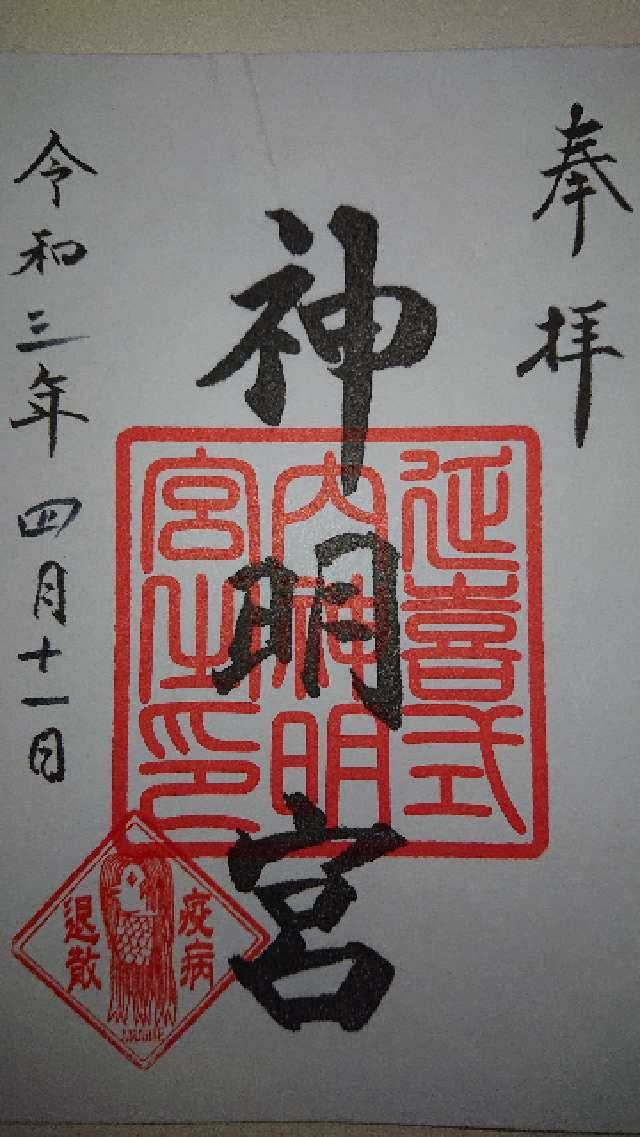 奉拝
神明宮
令和三年四月十一日
延喜式
内神明
宮之印
疫病
退散